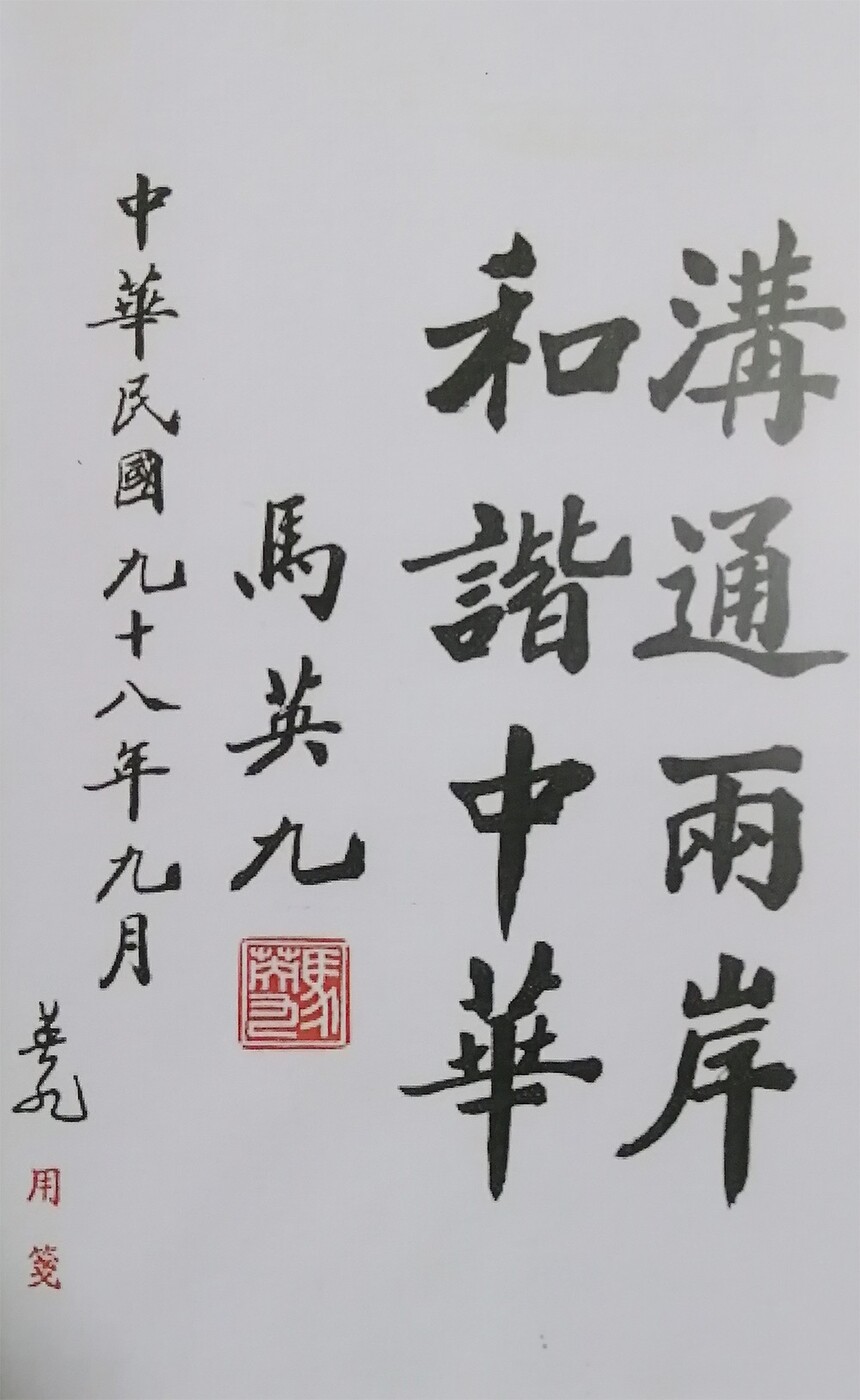 溝通兩岸
和諧中華
馬英九
馬英九
中華民國九十八年九月
英九
用箋